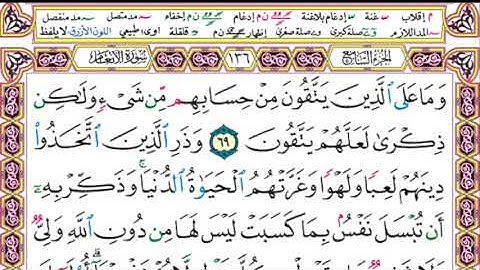 م إقلاب غنة إدغام بلاغنة ن م إدغام ن م إخفاء مد متصل مد منفصل
المد اللازم صلة كبرى وصلة صغرى إظهار ن م قلقلة اوى، طبيعي اللون الأزرق لا يلفظ
الجزء السابع ١٣٦ سورة الأنعام
وَمَا عَلَى ٱلَّذِينَ يَتَّقُونَ مِنْ حِسَابِهِم مِّن شَىْءٍ وَلَـٰكِن
ذِكْرَىٰ لَعَلَّهُمْ يَتَّقُونَ ٦٩ وَذَرِ ٱلَّذِينَ ٱتَّخَذُوا۟
دِينَهُمْ لَعِبًا وَلَهْوًا وَغَرَّتْهُمُ ٱلْحَيَوٰةُ ٱلدُّنْيَا ۚ وَذَكِّرْ بِهِۦٓ
أَن تُبْسَلَ نَفْسٌۢ بِمَا كَسَبَتْ لَيْسَ لَهَا مِن دُونِ ٱللَّهِ وَلِىٌّ